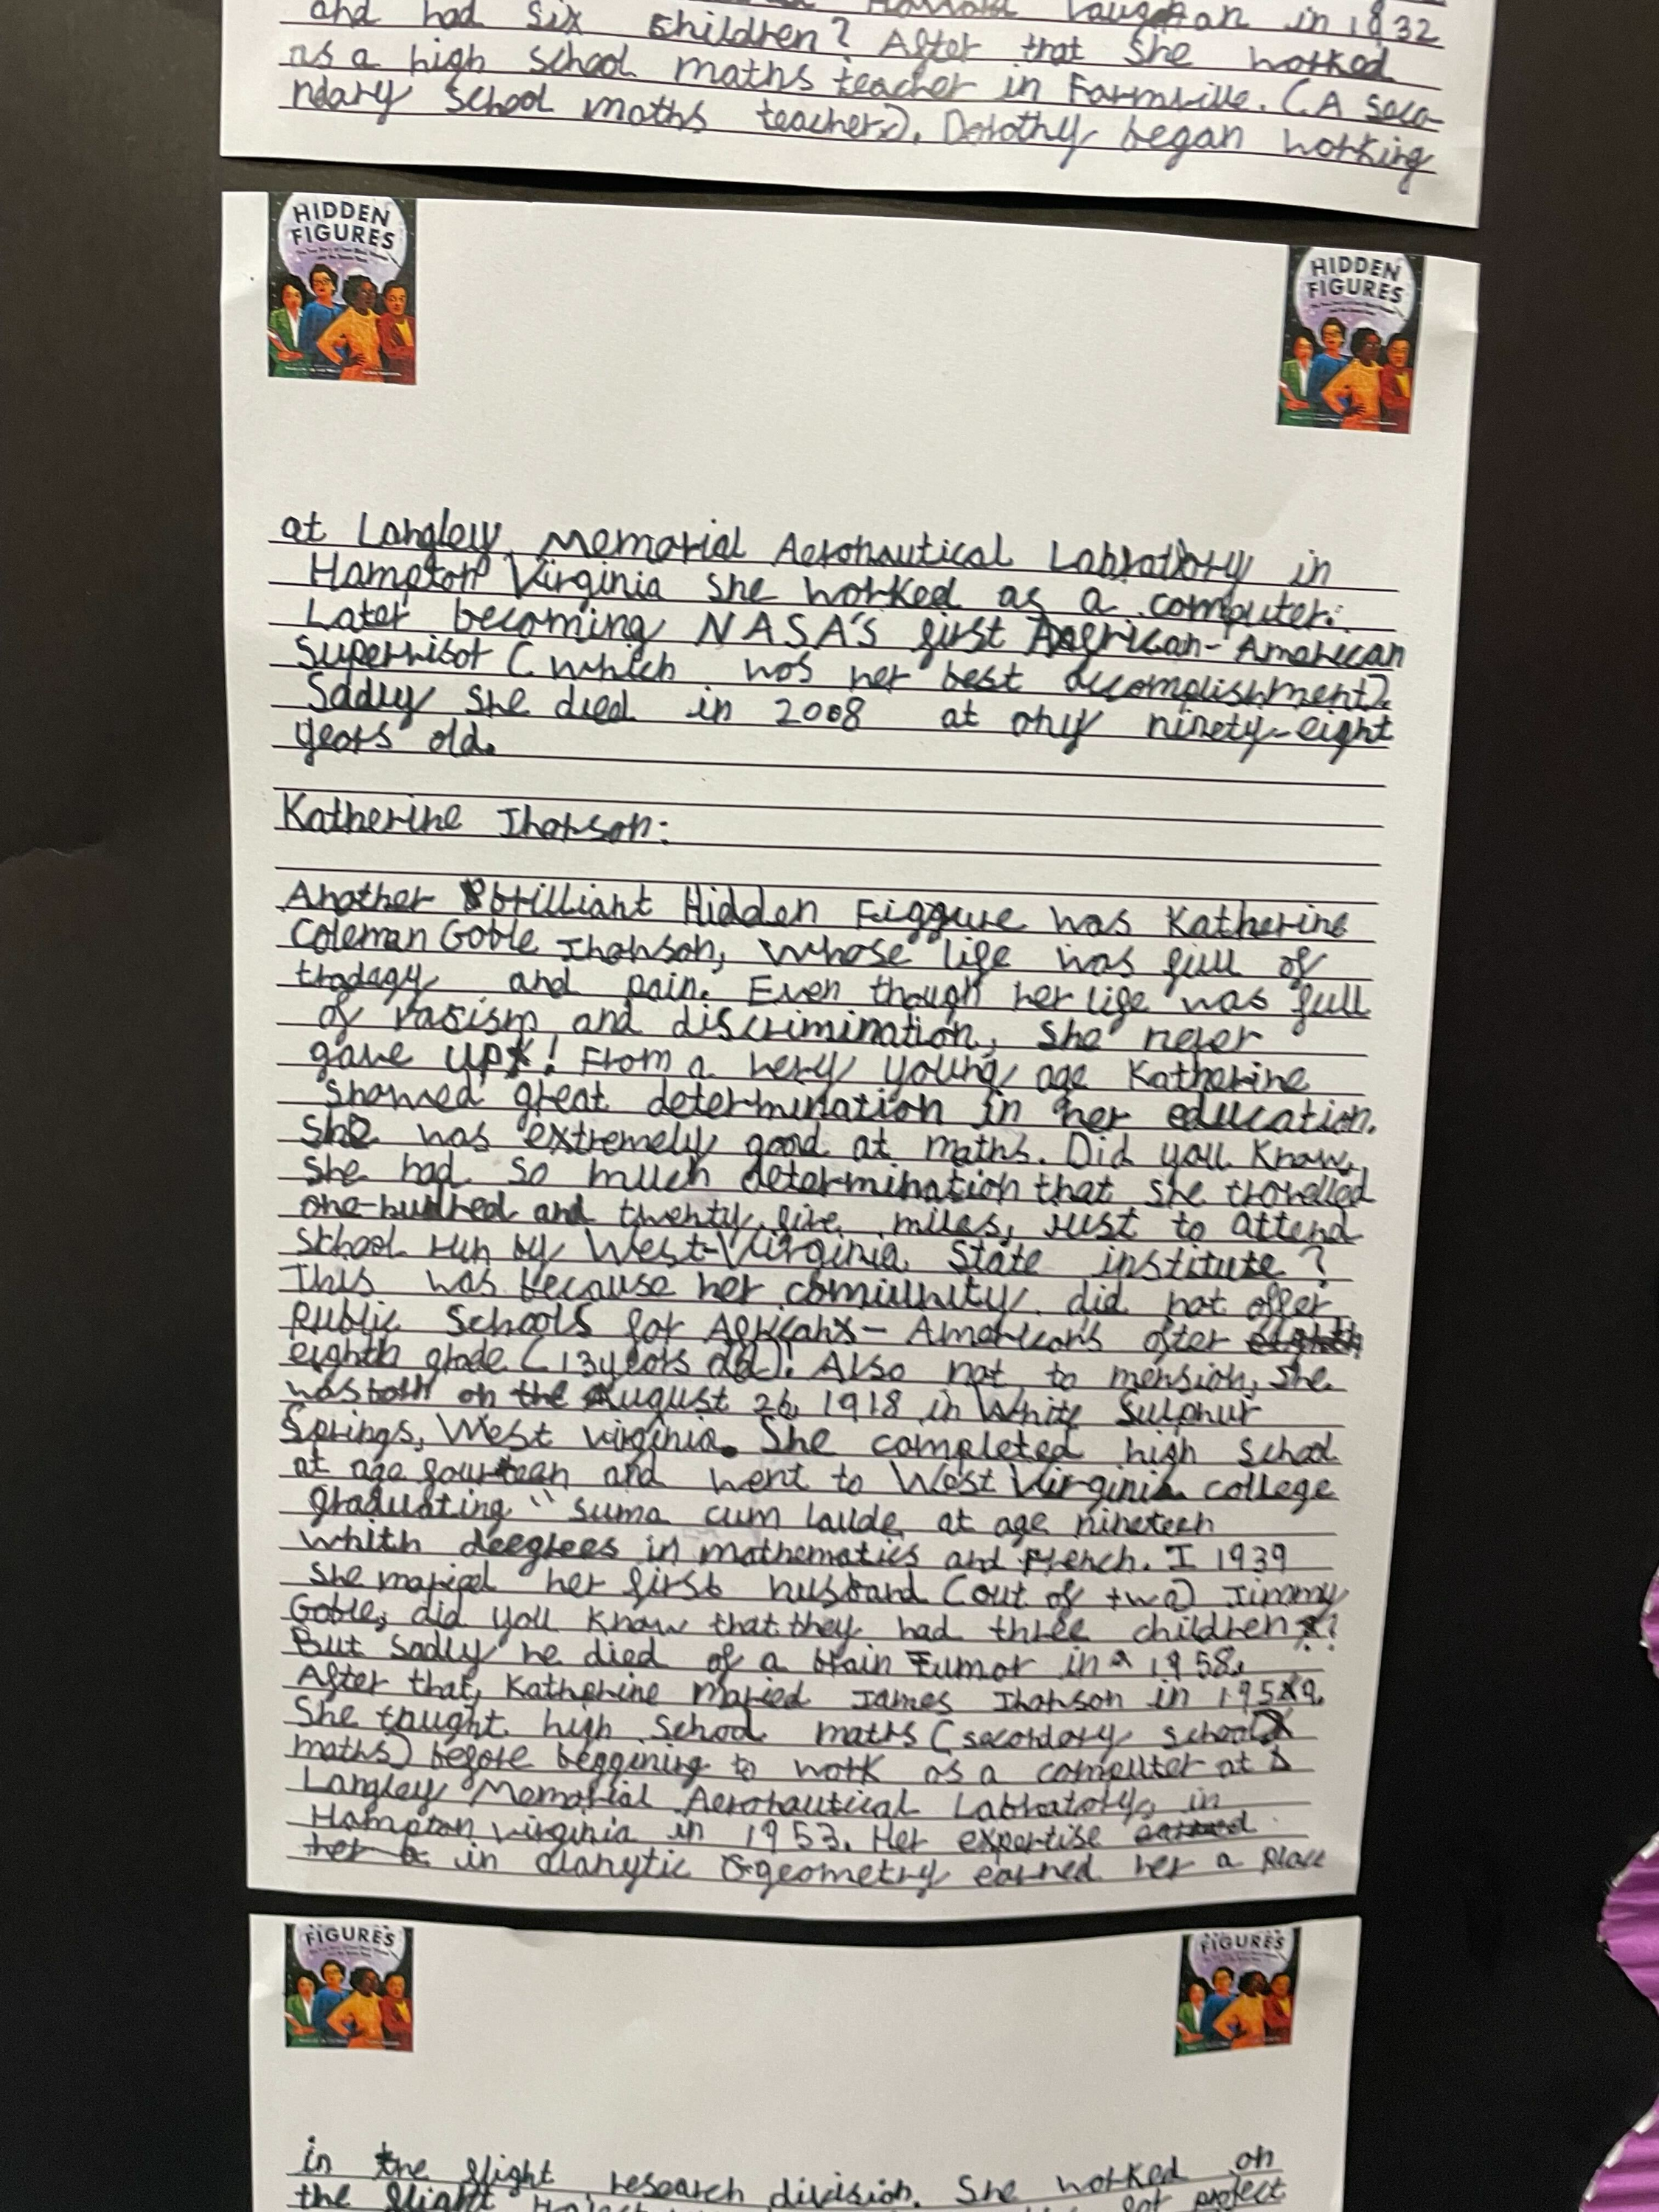 Vaughan in 1832
and had six children? After that she worked
as a high school maths teacher in Farmville. (A seco-
ndary school maths teacher). Dorothy began working
HIDDEN
FIGURES
HIDDEN
FIGURES
at Langley Memorial Aeronautical Labratory in
Hampton Virginia she worked as a computer.
Later becoming NASA's first African-American
Supervisor (which was her best accomplishment).
Sadly she died in 2008 at only ninety-eight
years old.
Katherine Jhonson:
Another brilliant Hidden Figgure was Katherine
Coleman Goble Jhonson, whose life was full of
tradagy and pain. Even though her life was full
of racism and discrimination, she never
gave up! From a very young age Katherine
showed great determination in her education.
She was extremely good at maths. Did you know,
she had so much determination that she travelled
one-hundred and twenty five miles, just to attend
school run by West-Virginia State institute?
This was because her comiunity did not offer
public schools for African - American's after eighth
eighth grade (13 years old)! Also not to mension, she
was born on the August 26, 1918 in White Sulphur
Springs, West virginia. She completed high school
at age fourteen and went to West Virginia college
graduating "suma cum laude at age nineteen
whith deegrees in mathematics and French. I 1939
she maried her first husband (out of two) Jimmy
Goble, did you know that they had three children?
But sadly he died of a brain Tumor in 1958.
After that, Katherine maried James Jhonson in 1959.
She taught high school maths (secondery school
maths) before beggining to work as a computer at
Langley Memorial Aeronautical Labratory, in
Hampton virginia in 1953. Her expertise earned
her in alanytic geometry earned her a place
FIGURES
FIGURES
in the flight research division. She worked on
the flight project